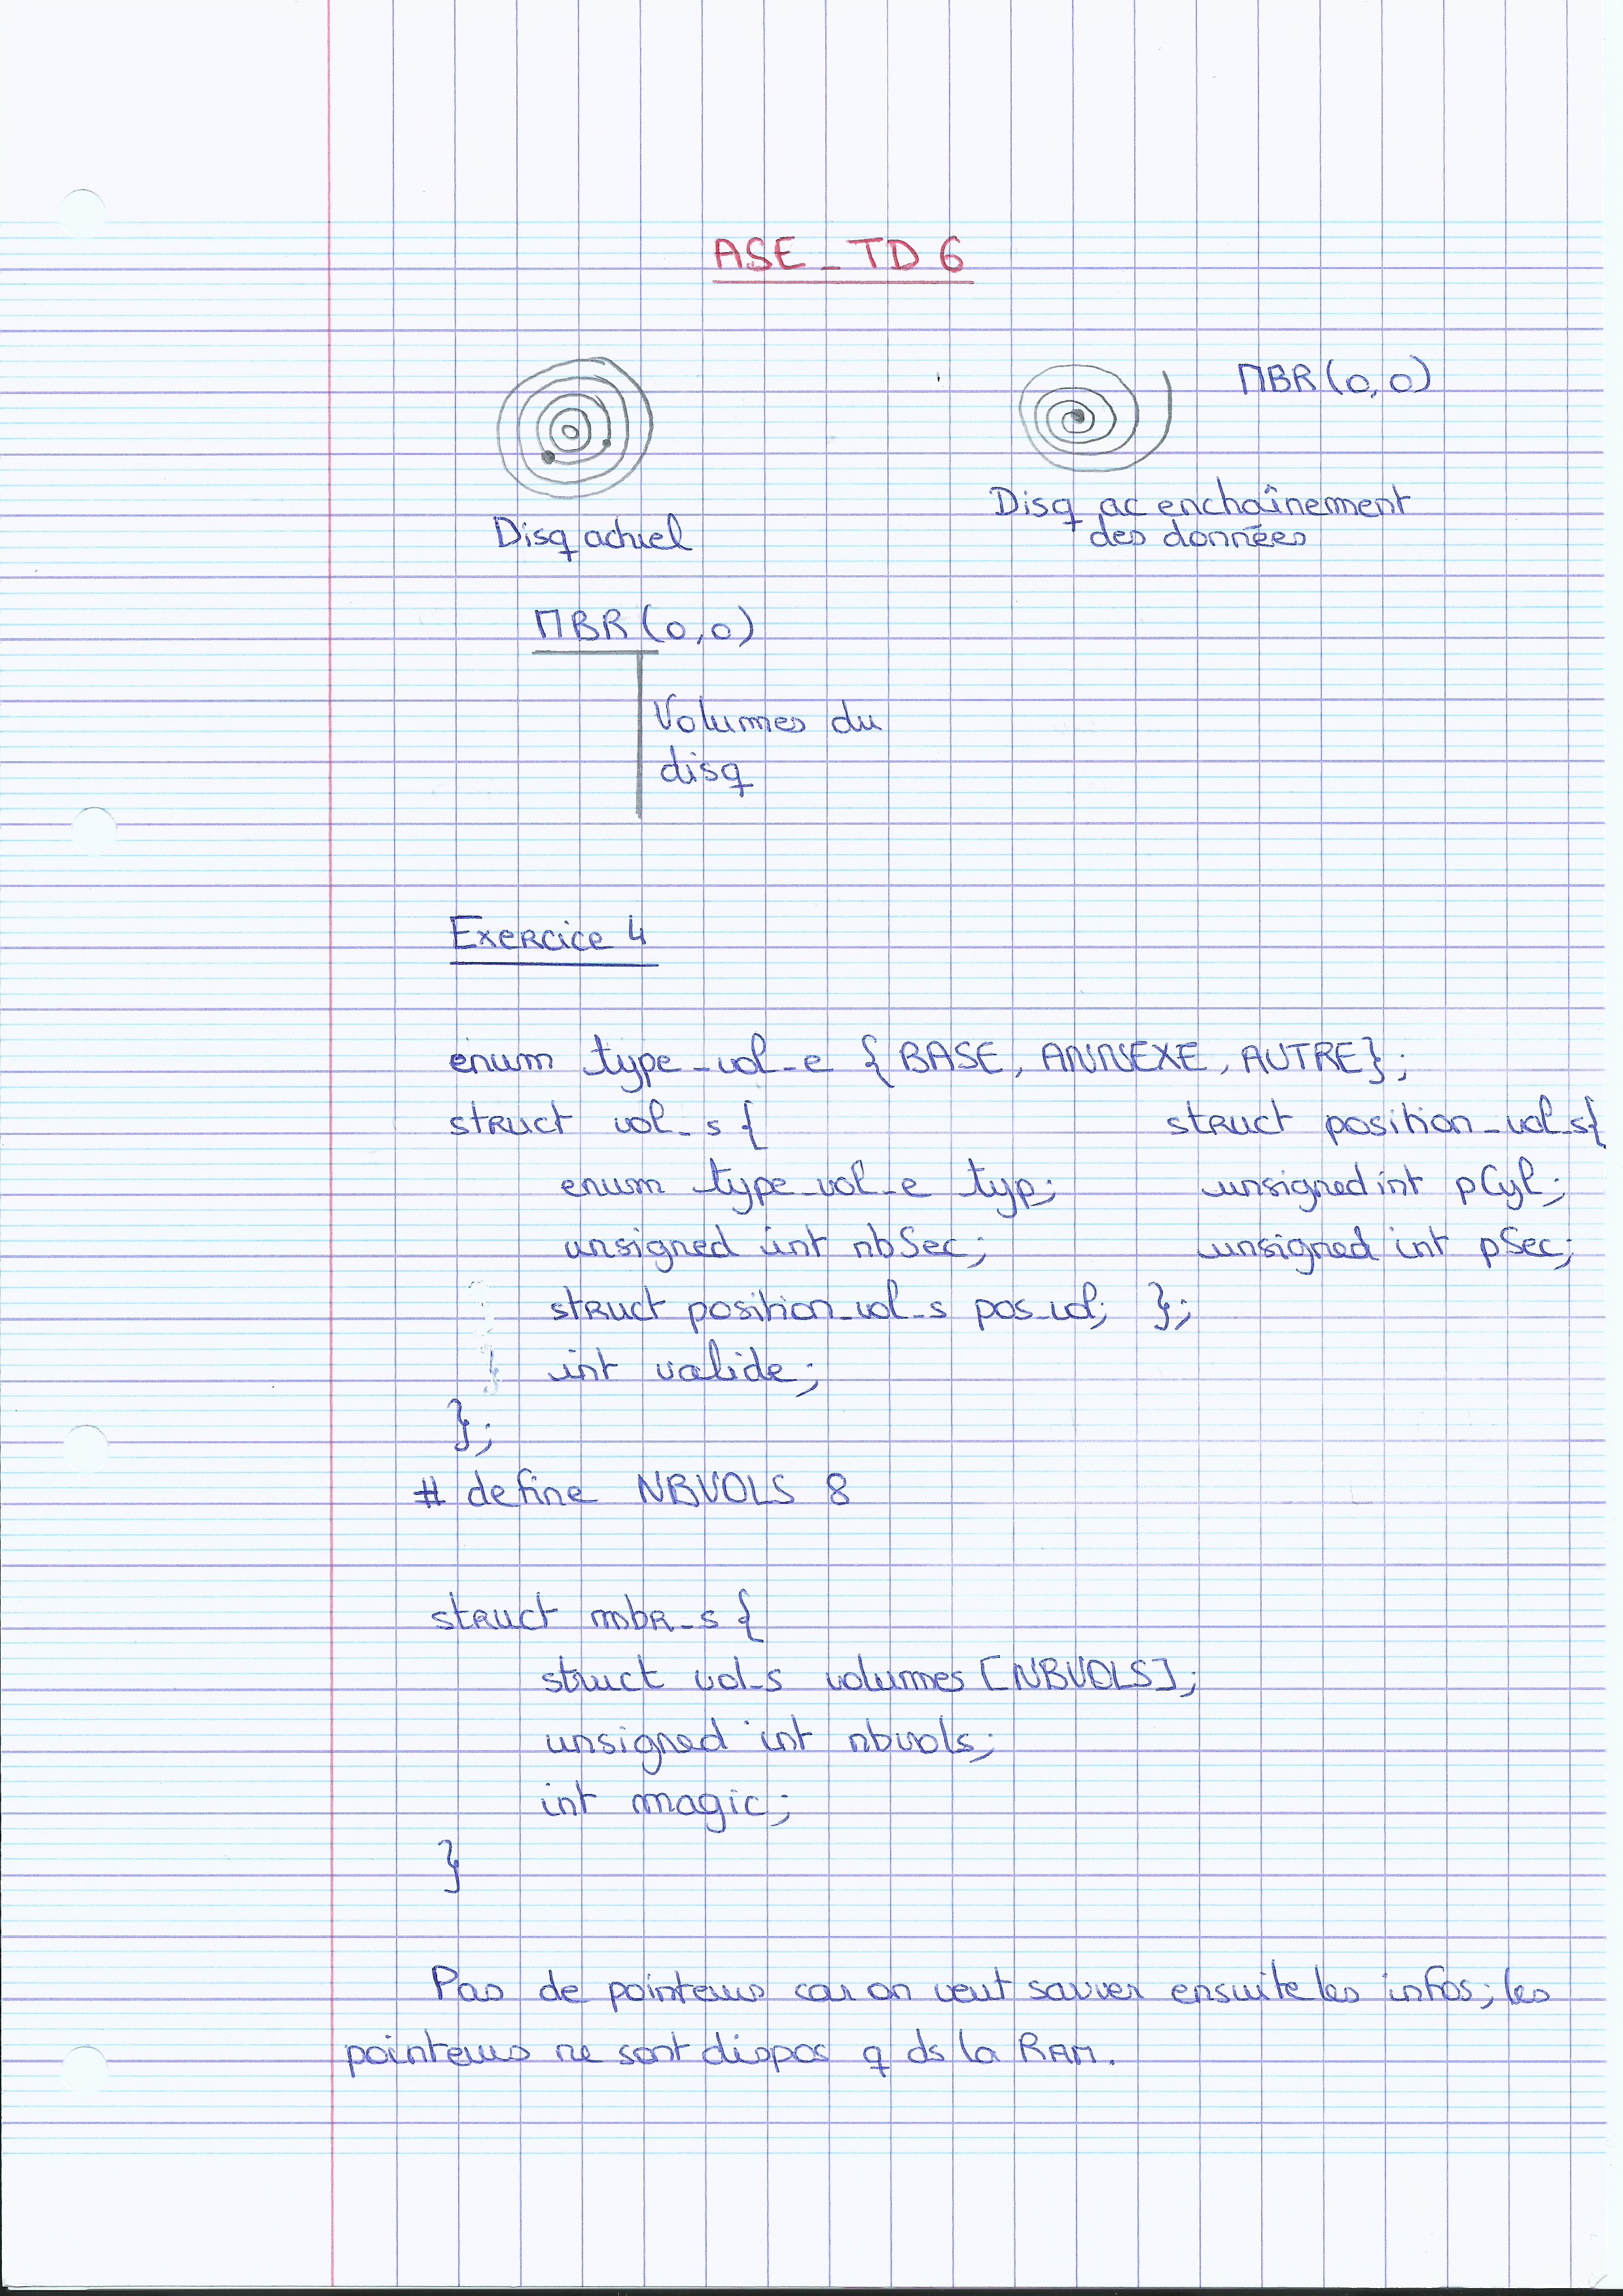 ASE_TD 6
MBR(0,0)
Disq actuel
Disq ac enchaînement
des données
MBR(0,0)
Volumes du
disq
Exercice 4
enum type_vol_e {BASE, ANNEXE, AUTRE};
struct vol_s{
enum type_vol_e typ;
unsigned int nbSec;
struct position_vol_s pos_vol;
int valide;
};
struct position_vol_s{
unsigned int pCyl;
unsigned int pSec;
};
# define NBVOLS 8
struct mbr_s{
struct vol_s volumes [NBVOLS];
unsigned int nbvols;
int magic;
}
Pas de pointeurs car on veut sauver ensuite les infos; les
pointeurs ne sont dispos q ds la RAM.